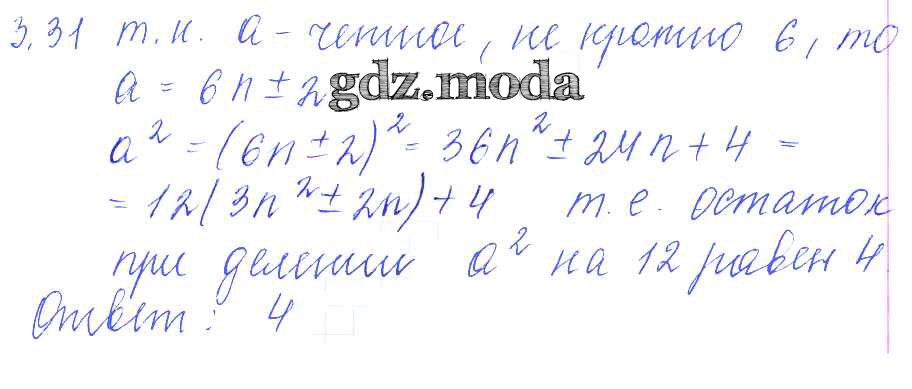 3.31 т.к. a - четное, не кратно 6, то
a = 6n ± 2
gdz.moda
a² = (6n ± 2)² = 36n² ± 24n + 4 =
= 12(3n² ± 2n) + 4 т.е. остаток
при делении a² на 12 равен 4
Ответ: 4